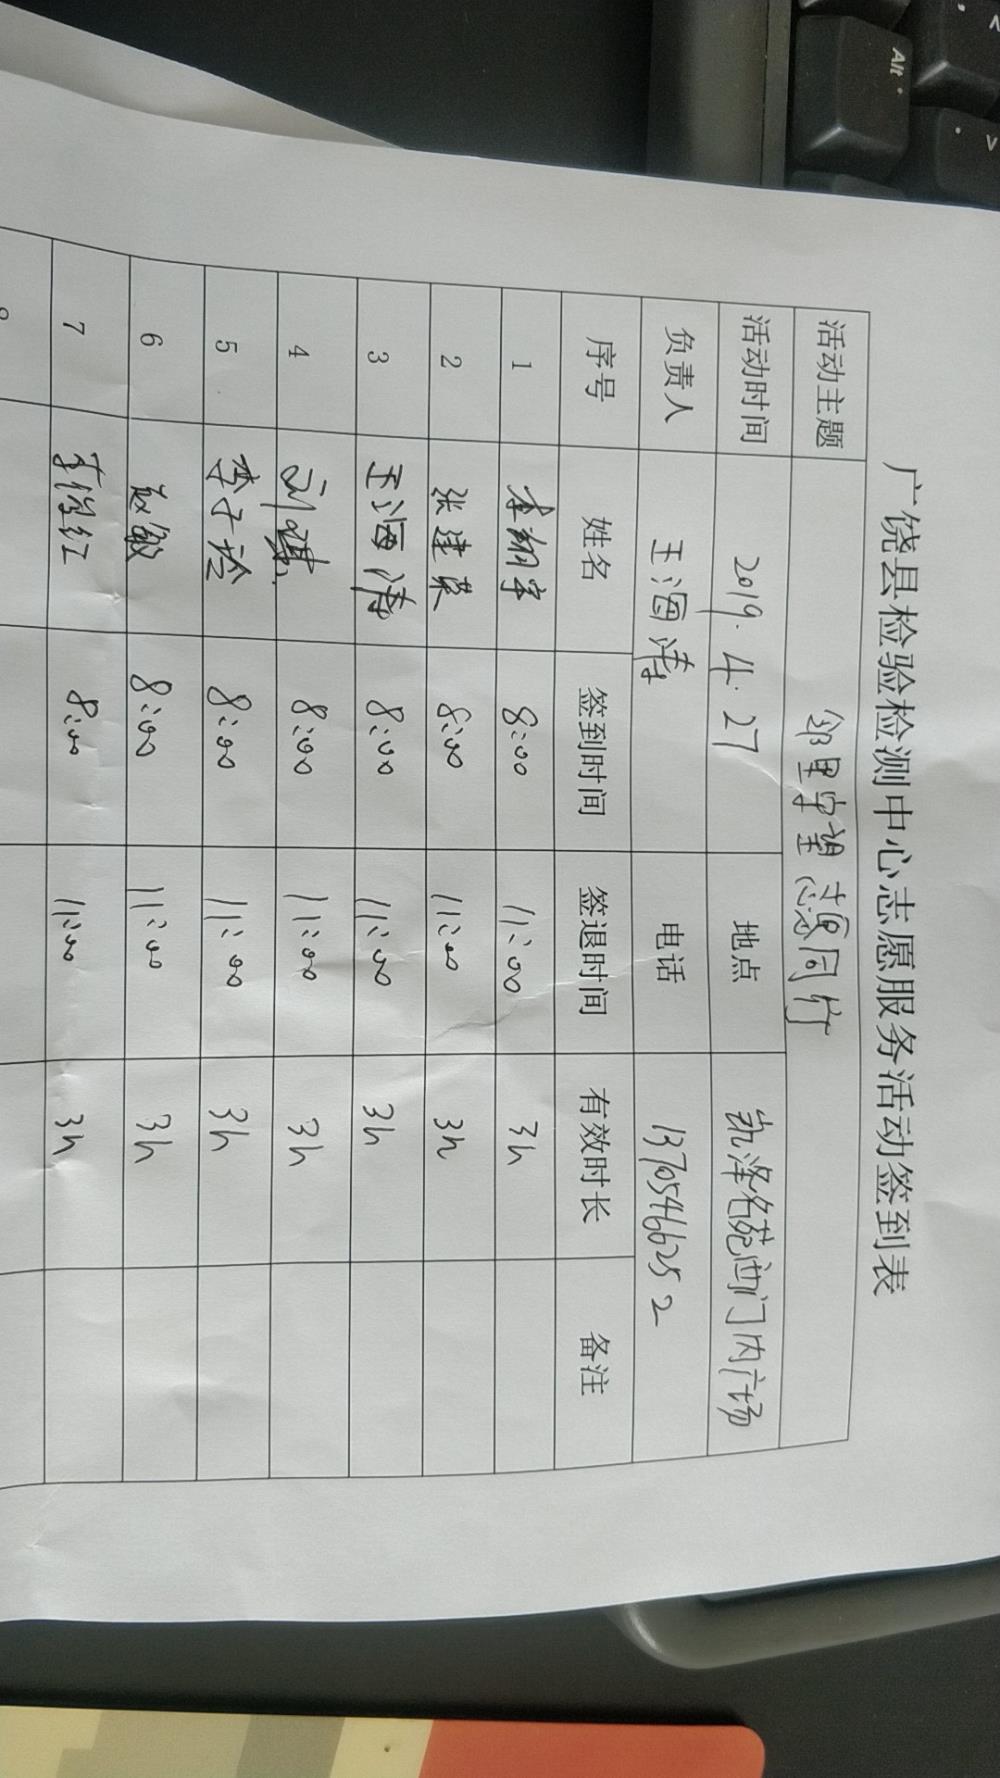 广饶县检验检测中心志愿服务活动签到表
活动主题 邻里守望 志愿同行
活动时间 2019.4.27 地点 凯泽名苑西门内广场
负责人 王海涛 电话 13705466252
序号 姓名 签到时间 签退时间 有效时长 备注
1 李翔宇 8:00 11:00 3h
2 张建英 8:00 11:00 3h
3 王海涛 8:00 11:00 3h
4 刘琪 8:00 11:00 3h
5 李子玲 8:00 11:00 3h
6 赵敏 8:00 11:00 3h
7 8:00 11:00 3h
Alt